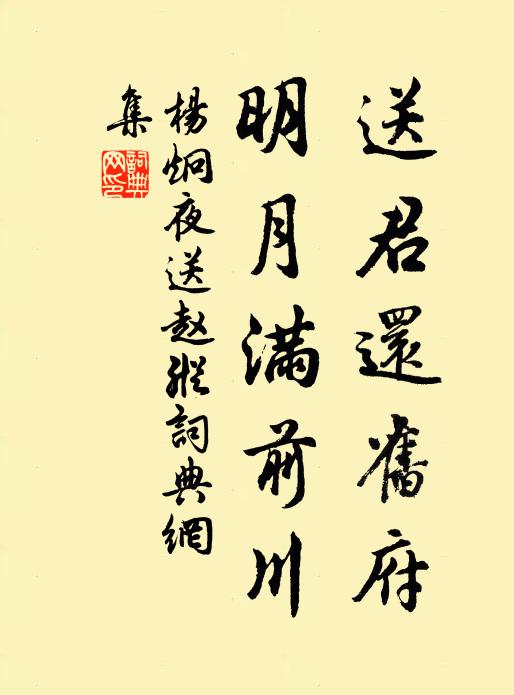 送君還舊府
明月滿前川
楊炯夜送趙縱詞典網
集
詞典
网印